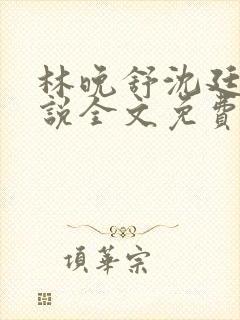 林晚舒沈廷
說全文免費
項華宗